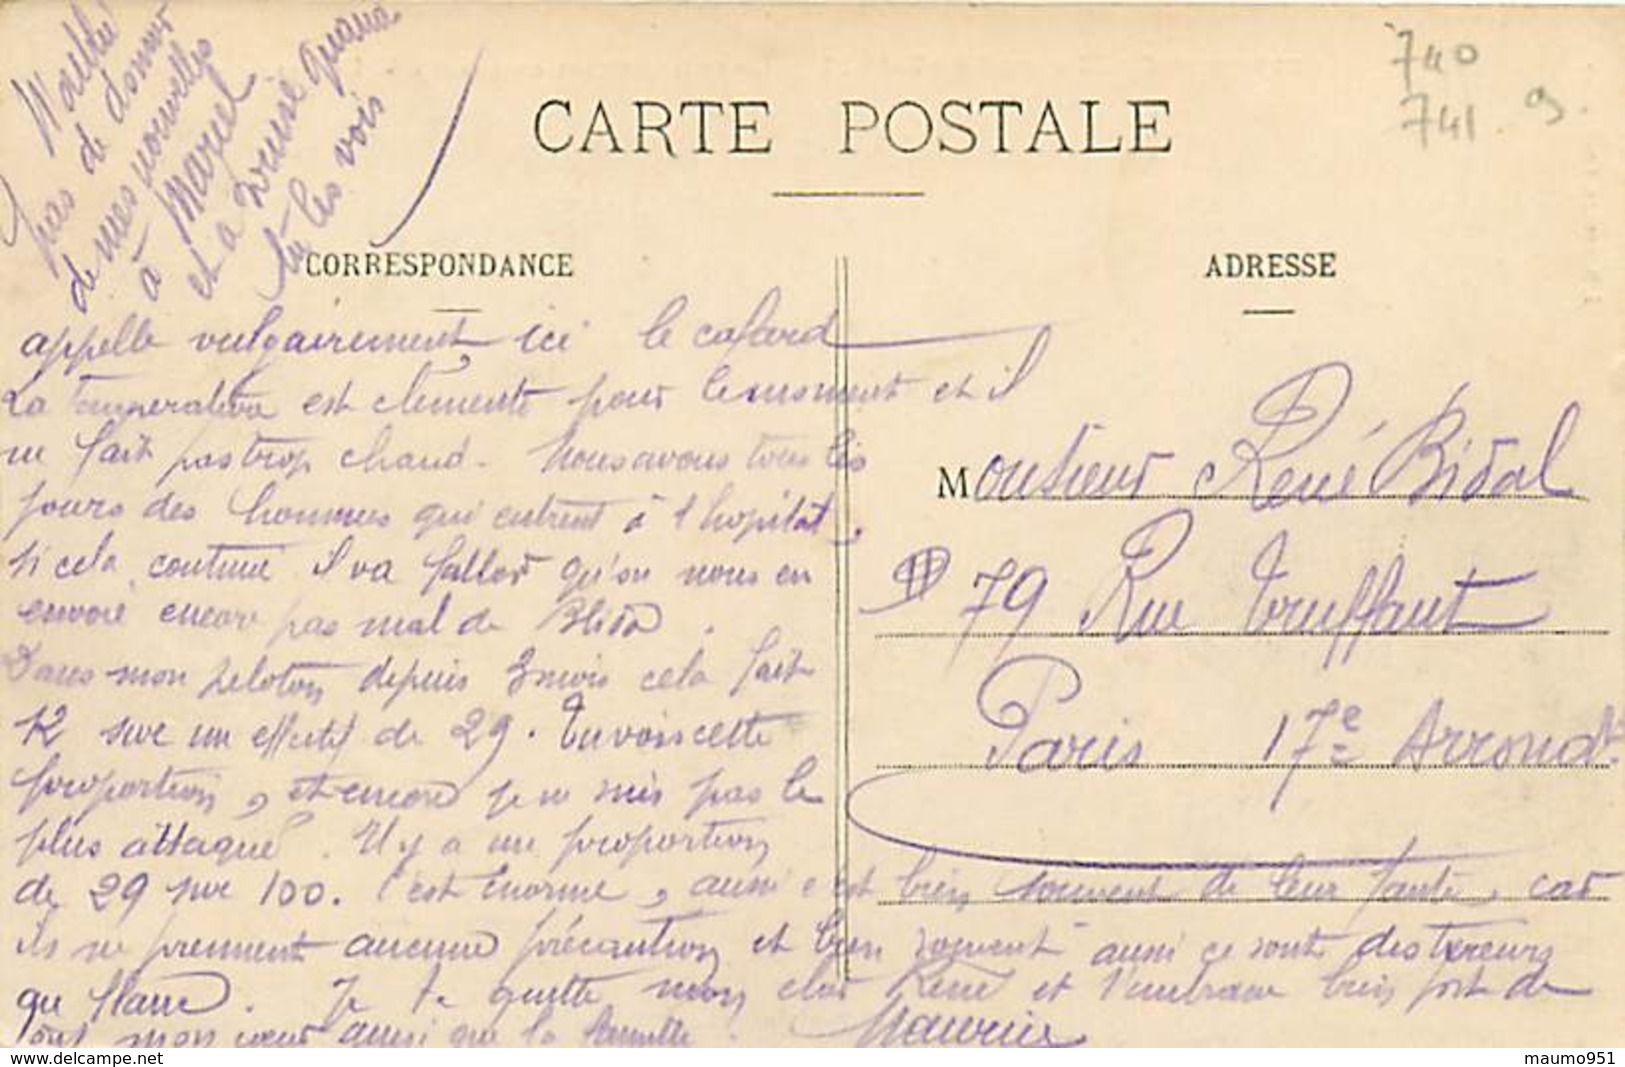 N'oublie
pas de donner
de mes nouvelles
à Marcel
et à Louise quand
tu les vois
740
741 9.
CARTE POSTALE
CORRESPONDANCE
ADRESSE
appelle vulgairement ici le cafard
La température est clémente pour le moment et il
ne fait pas trop chaud. Nous avons tous les
jours des hommes qui entrent à l'hopital,
si cela continue il va falloir qu'on nous en
envoie encore pas mal de Blida.
Dans mon peloton depuis 3 mois cela fait
12 sur un effectif de 29. Tu vois cette
proportion, et encore je ne suis pas le
plus attaqué. Il y a une proportion
de 29 sur 100. C'est énorme, aussi c'est bien souvent de leur faute, car
ils ne prennent aucune précaution et bien souvent aussi ce sont des tireurs
au flanc. Je te quitte mon cher René et t'embrasse bien fort de
tout mon cœur ainsi que la famille.
Maurice
Monsieur René Bidal
79 Rue Truffaut
Paris 17e Arrondt.
delcampe.net
maumo951